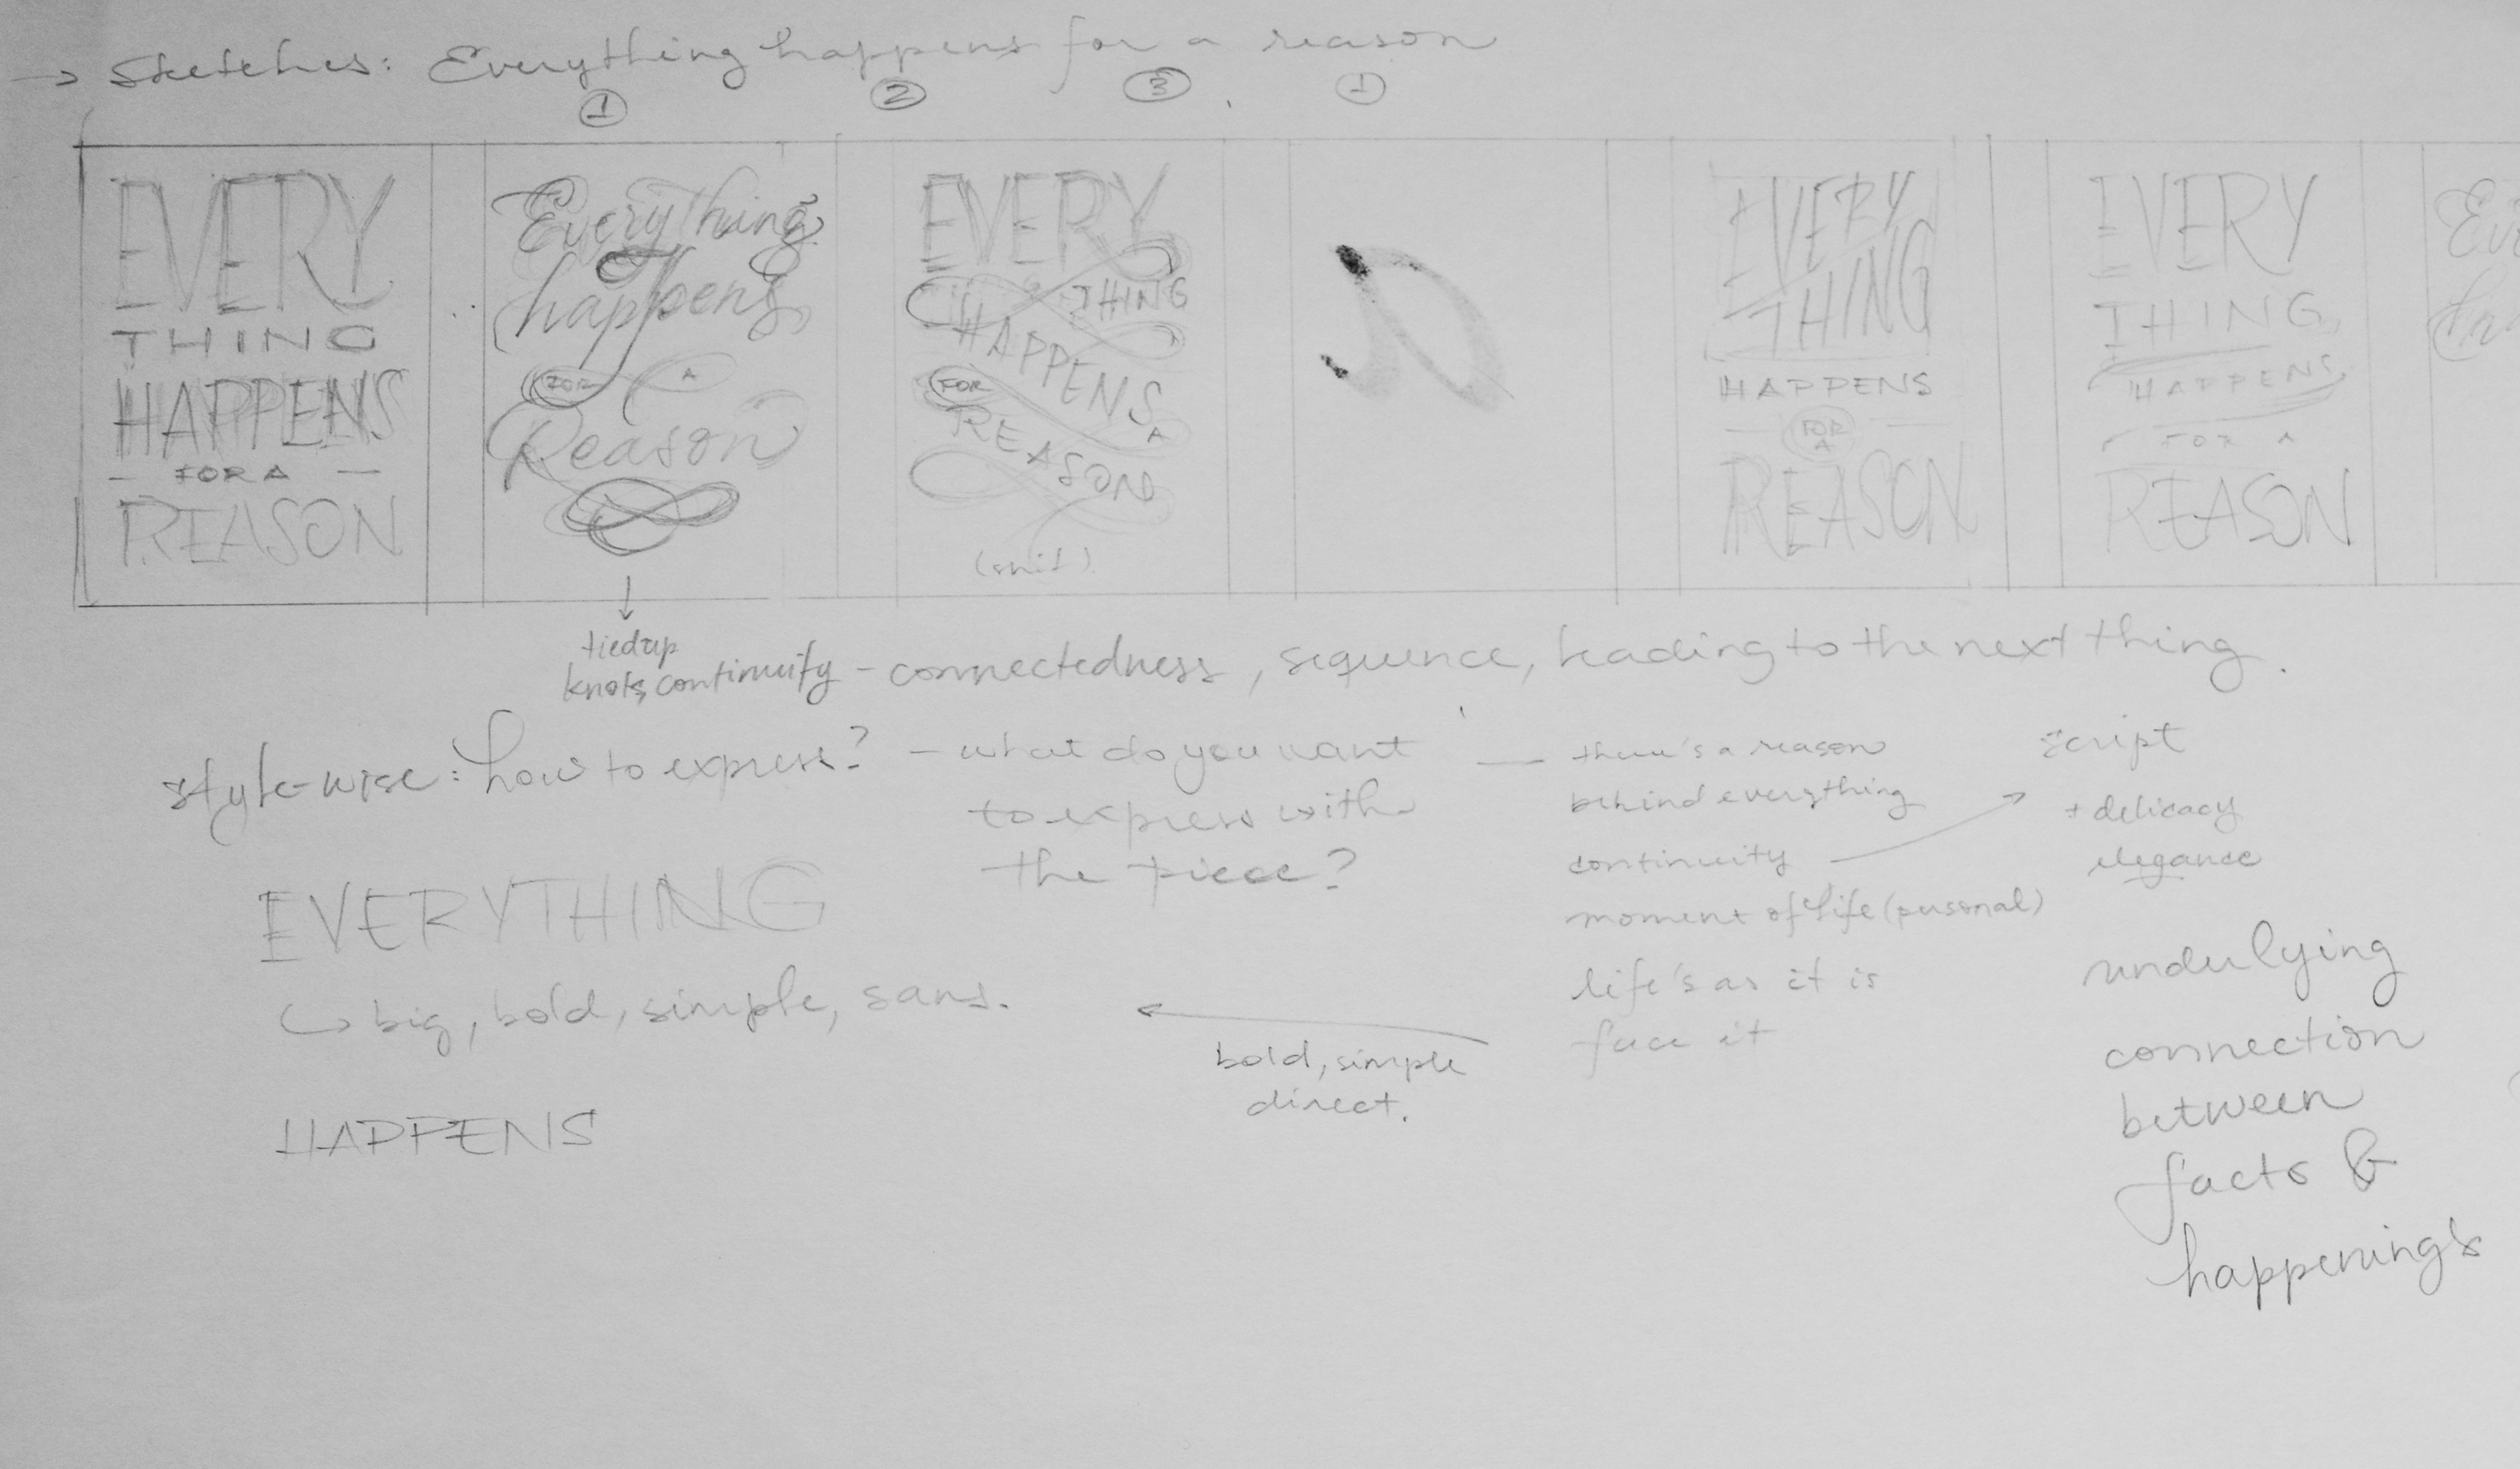 → Sketches: Everything happens for a reason
① ② ③ ①
EVERY
THING
HAPPENS
- FOR A -
REASON
Everything
happens
FOR A
Reason
EVERY
THING
HAPPENS
FOR A
REASON
EVERY
THING
HAPPENS
FOR
A
REASON
EVERY
THING
HAPPENS
FOR A
REASON
tied up
knots, continuity - connectedness, sequence, leading to the next thing.
style-wise: how to express?
- what do you want
to express with
the piece?
— there's a reason
behind everything
continuity
moment of life (personal)
life's as it is
face it
script
+ delicacy
elegance
EVERYTHING
↪ big, bold, simple, sans.
bold, simple
direct.
HAPPENS
underlying
connection
between
facts &
happenings